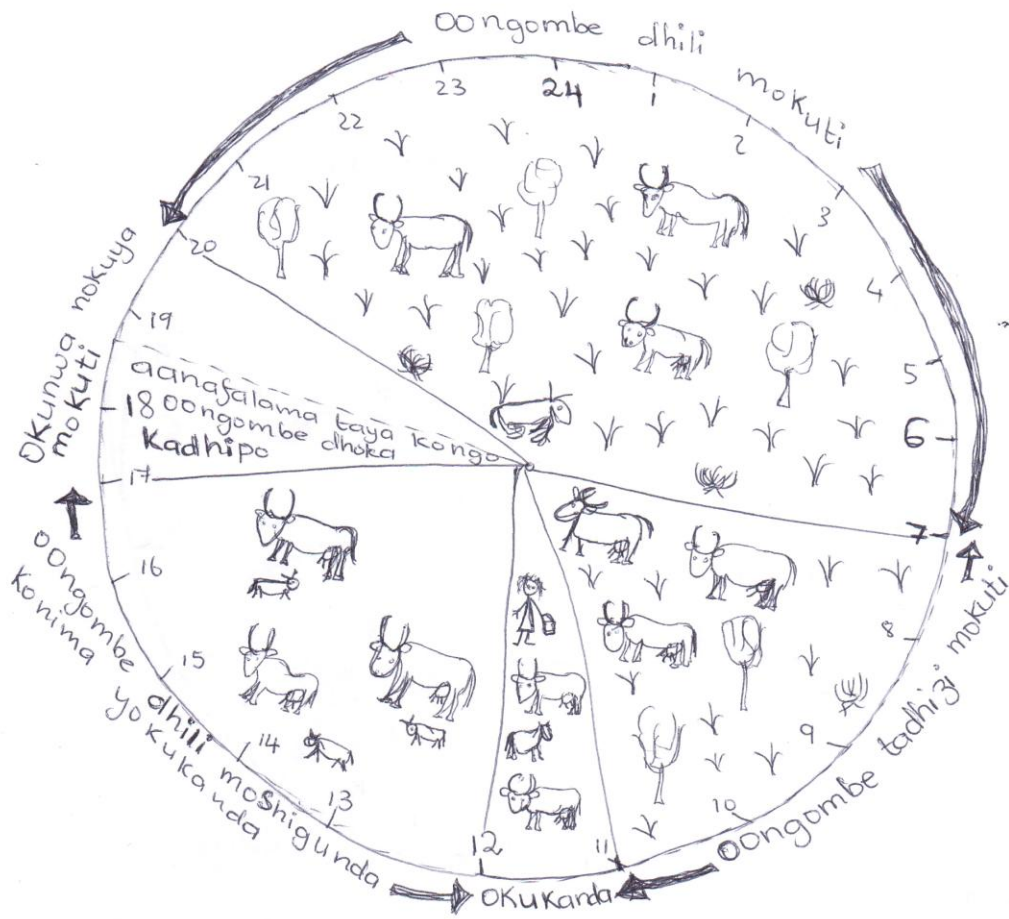 oongombe dhili mokuti
24
1
2
3
4
5
6
7
8
9
10
11
12
13
14
15
16
17
18
19
20
21
22
23
oongombe tadhizi mokuti
OKUKanda
oongombe dhili moshigunda
konima yokukanda
OKUnwa nokuya
mokuti
aanafalama taya kongo
oongombe dhoka
Kadhipo